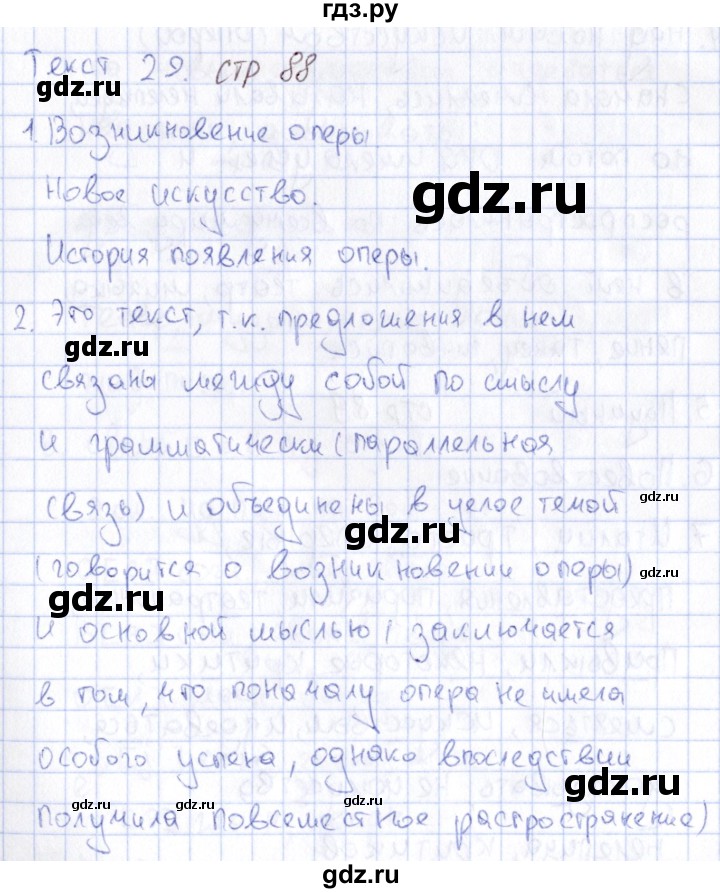 гдз.ру
Текст 29. стр 88
gdz.ru
1. Возникновение оперы
Новое искусство.
gdz.ru
История появления оперы.
2. Это текст, т.к. предложения в нем
gdz.ru
связаны между собой по смыслу
и грамматически (параллельная
связь) и объединены в целое темой
gdz.ru
gdz.ru
(говорится о возникновении оперы)
gdz.ru
gdz.ru
и основной мыслью ( заключается
в том, что поначалу опера не имела
особого успеха, однако впоследствии
gdz.ru
gdz.ru
gdz.ru
получила повсеместное распространение)